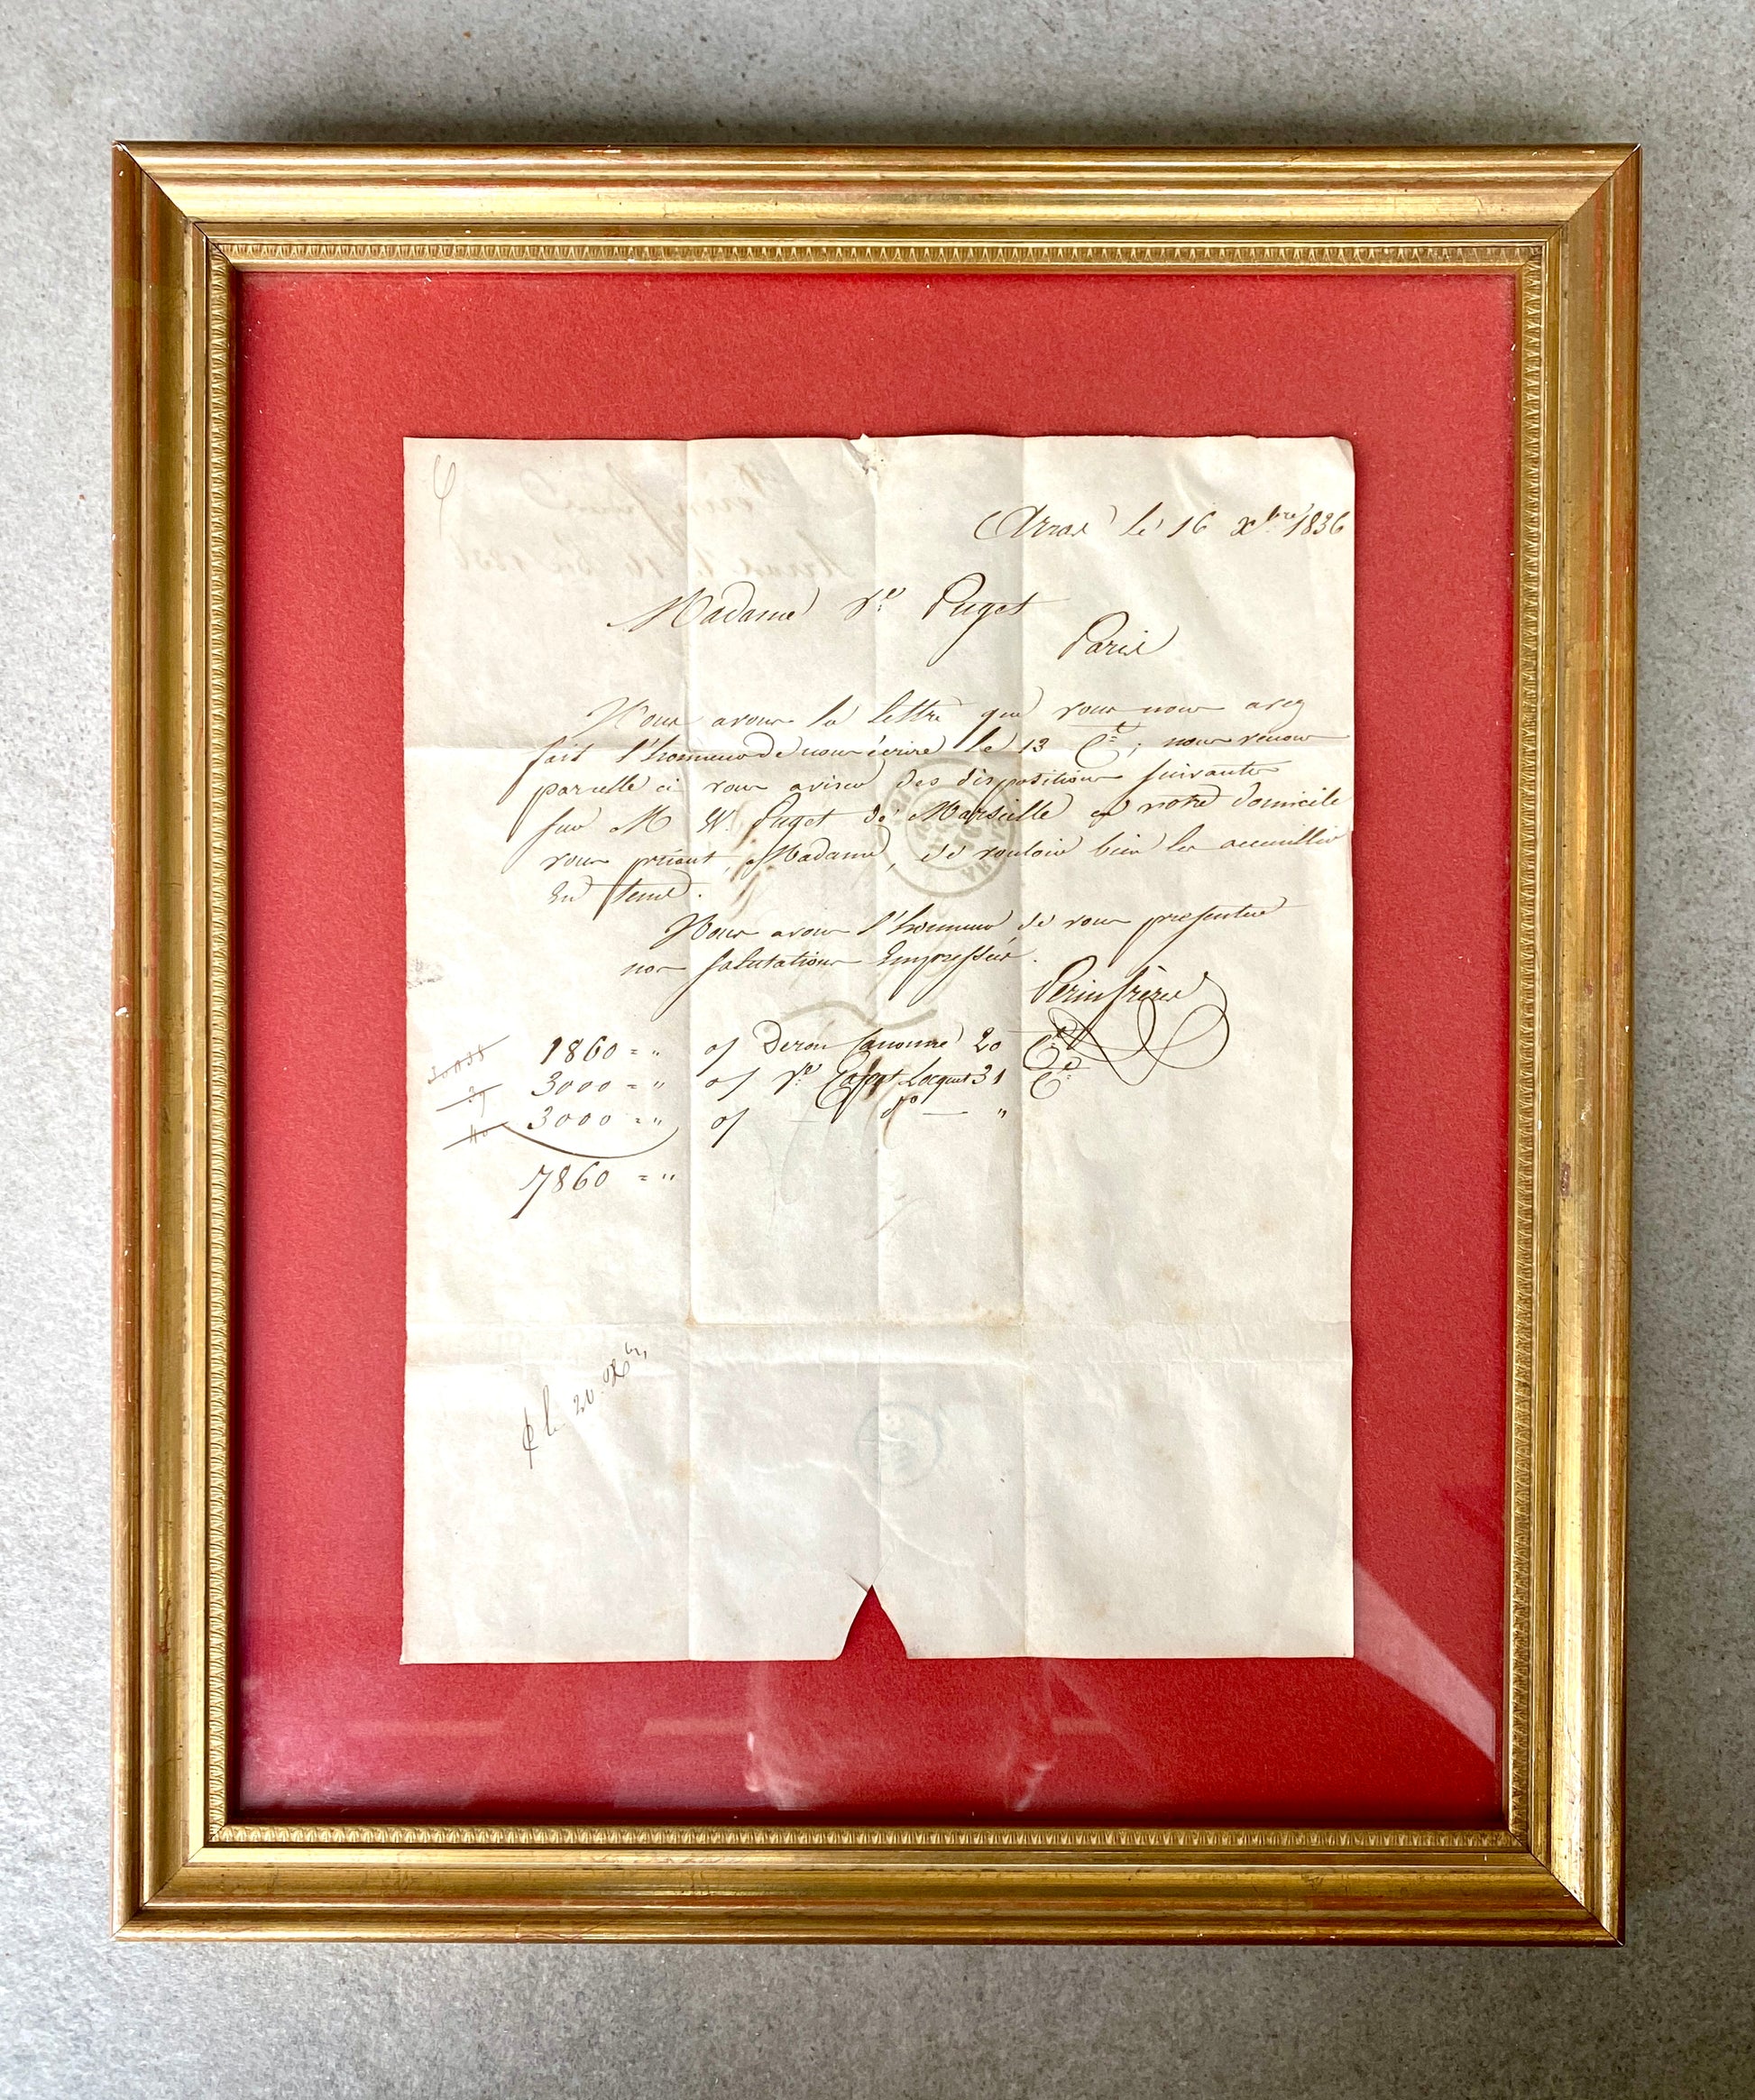 Arras le 16 Xbre 1836
Madame Ve Puget
Paris
Nous avons la lettre que vous nous avez
fait l'honneur de nous écrire le 13 Ct; nous venons
par celle ci vous aviser des dispositions suivantes
sur M W. Puget de Marseille et notre domicile
vous priant, Madame, de vouloir bien les accueillir
En tems.
Nous avons l'honneur de vous presenter
nos salutations Empressées.
Perin frères
1860 = " o/ Canonne 20 Ct
3000 = " o/ Ve 31 Ct
3000 = " o/ do — "
7860 = "
le 20 Xbre